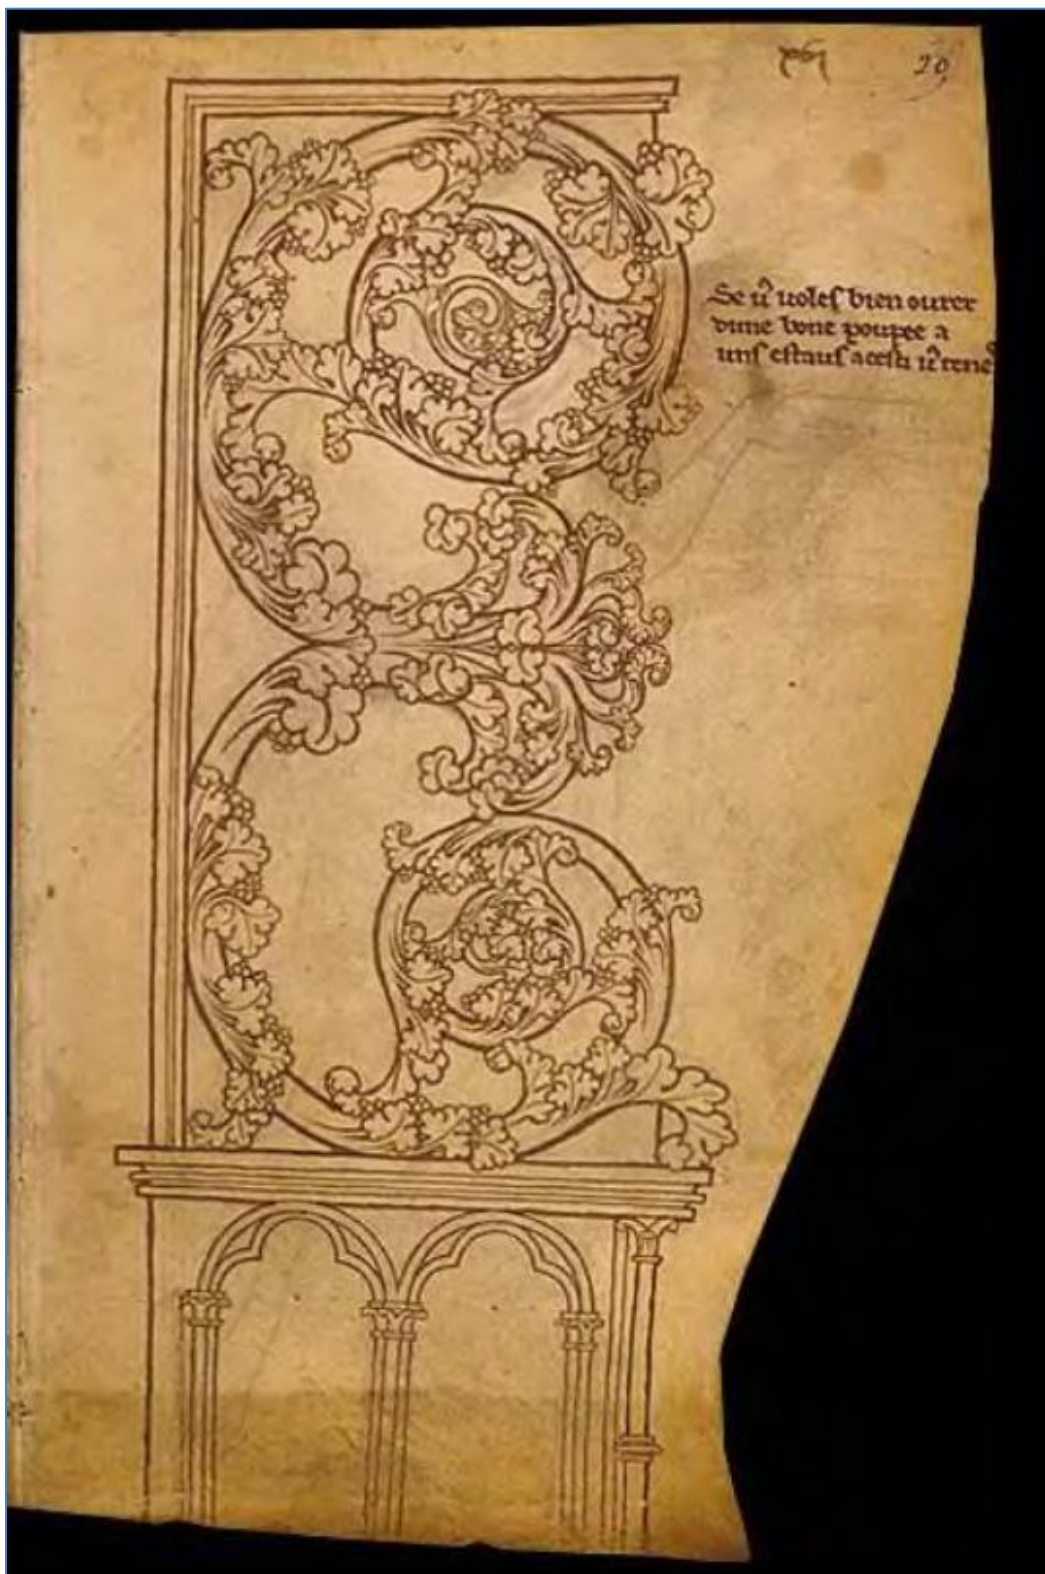 29
Se uꝰ uoleſ bien ourer
dune bone poupee a
unſ eſtauſ aceſti uꝰ teneſ